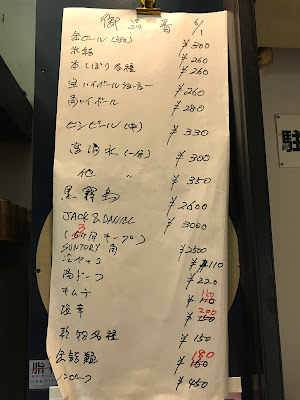 御品書 6/1
缶ビール(350) ¥300
氷結 ¥260
本しぼり各種 ¥260
宝ハイボール ¥260
角ハイボール ¥280
ビンビール(中) ¥330
高清水(一合) ¥300
他 〃 ¥350
黒霧島 ¥2600
JACK DANIEL ¥3000
キープ)
SUNTORY 角 ¥2500
冷ヤッコ ¥110
湯ドーフ ¥220
キムチ 150
200 ¥150
乾物各種 ¥150
180 ¥160
¥450
駐
脂